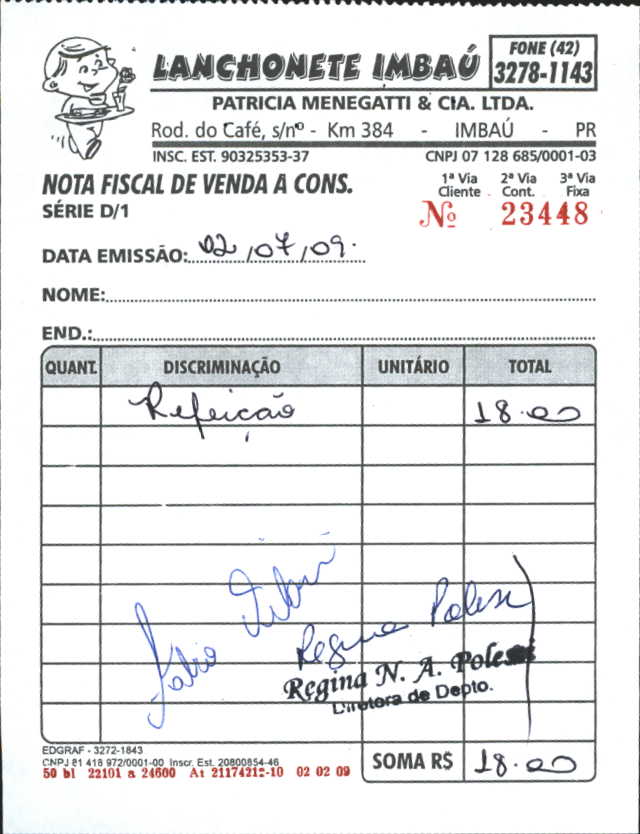 LANCHONETE IMBAÚ
FONE (42)
3278-1143
PATRICIA MENEGATTI & CIA. LTDA.
Rod. do Café, s/nº - Km 384 - IMBAÚ - PR
INSC. EST. 90325353-37 CNPJ 07 128 685/0001-03
NOTA FISCAL DE VENDA A CONS.
SÉRIE D/1
1ª Via Cliente 2ª Via Cont. 3ª Via Fixa
Nº 23448
DATA EMISSÃO: 02/07/09
NOME:
END.:
QUANT. DISCRIMINAÇÃO UNITÁRIO TOTAL
Refeição 18.00
Fabio
Regina Polesi
Regina N. A. Polesi
Diretora de Depto.
EDGRAF - 3272-1843
CNPJ 81 418 972/0001-00 Inscr. Est. 20800854-46
50 bl 22101 a 24600 At 21174212-10 02 02 09
SOMA R$ 18.00